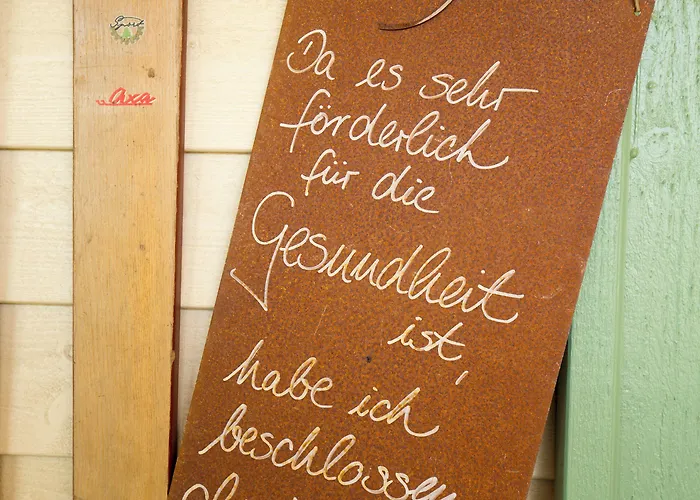 Sport
axa
Da es sehr
förderlich
für die
Gesundheit
ist,
habe ich
beschlossen